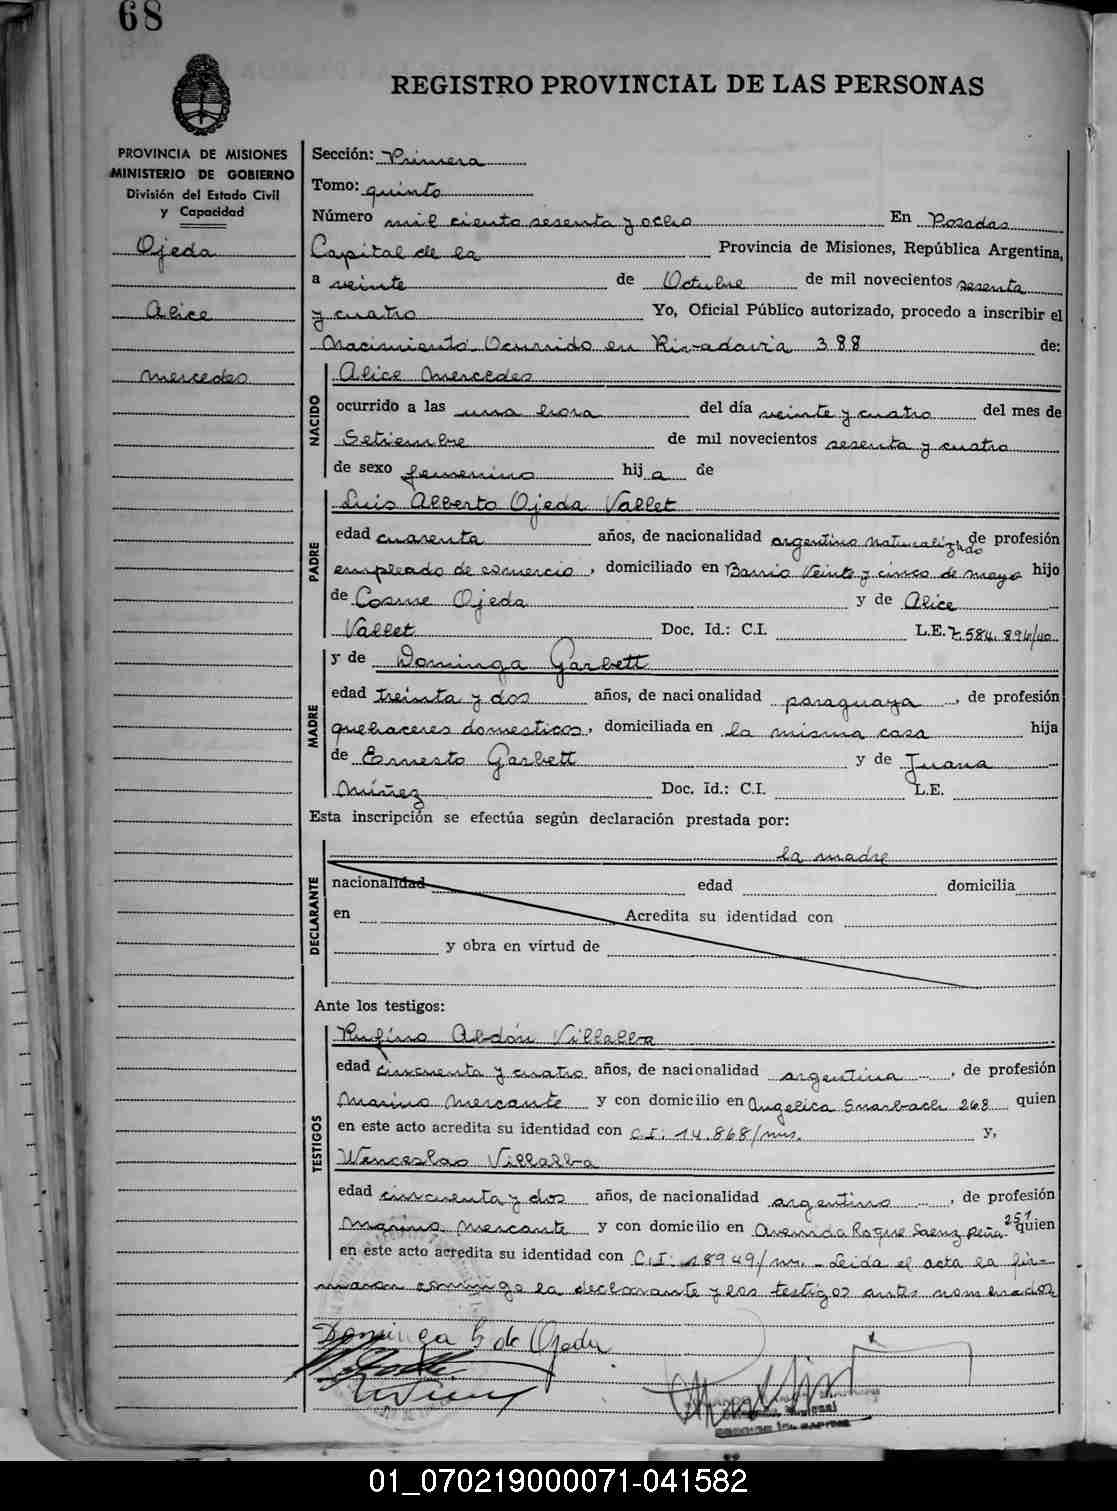 68
REGISTRO PROVINCIAL DE LAS PERSONAS
PROVINCIA DE MISIONES
MINISTERIO DE GOBIERNO
División del Estado Civil
y Capacidad
Ojeda
Alice
Mercedes
Sección: Primera
Tomo: quinto
Número mil ciento sesenta y ocho En Posadas
Capital de la Provincia de Misiones, República Argentina,
a veinte de Octubre de mil novecientos sesenta
y cuatro Yo, Oficial Público autorizado, procedo a inscribir el
Nacimiento Ocurrido en Rivadavia 388 de:
NACIDO
Alice Mercedes
ocurrido a las una hora del día veinte y cuatro del mes de
Setiembre de mil novecientos sesenta y cuatro
de sexo femenino hija de
PADRE
Luis Alberto Ojeda Vallet
edad cuarenta años, de nacionalidad argentino naturalizado de profesión
empleado de comercio, domiciliado en Barrio Veinte y cinco de mayo hijo
de Cosme Ojeda y de Alice
Vallet Doc. Id.: C.I. L.E. 7.584.894/40
MADRE
y de Dominga Garbett
edad treinta y dos años, de nacionalidad paraguaya, de profesión
quehaceres domesticos, domiciliada en la misma casa hija
de Ernesto Garbett y de Juana
Núñez Doc. Id.: C.I. L.E.
Esta inscripción se efectúa según declaración prestada por:
DECLARANTE
la madre
nacionalidad edad domicilia
en Acredita su identidad con
y obra en virtud de
Ante los testigos:
TESTIGOS
Rufino Abdón Villalba
edad cincuenta y cuatro años, de nacionalidad argentina, de profesión
Marino Mercante y con domicilio en Angelica 268 quien
en este acto acredita su identidad con C.I: 14.868/mns. y,
Wenceslao Villalba
edad cincuenta y dos años, de nacionalidad argentino, de profesión
Marino Mercante y con domicilio en Avenida Roque Saenz Peña 251 quien
en este acto acredita su identidad con C.I: 18949/ms. - Leida el acta la fir-
maron conmigo la declarante y los testigos antes nombrados
Dominga G de Ojeda
01_070219000071-041582